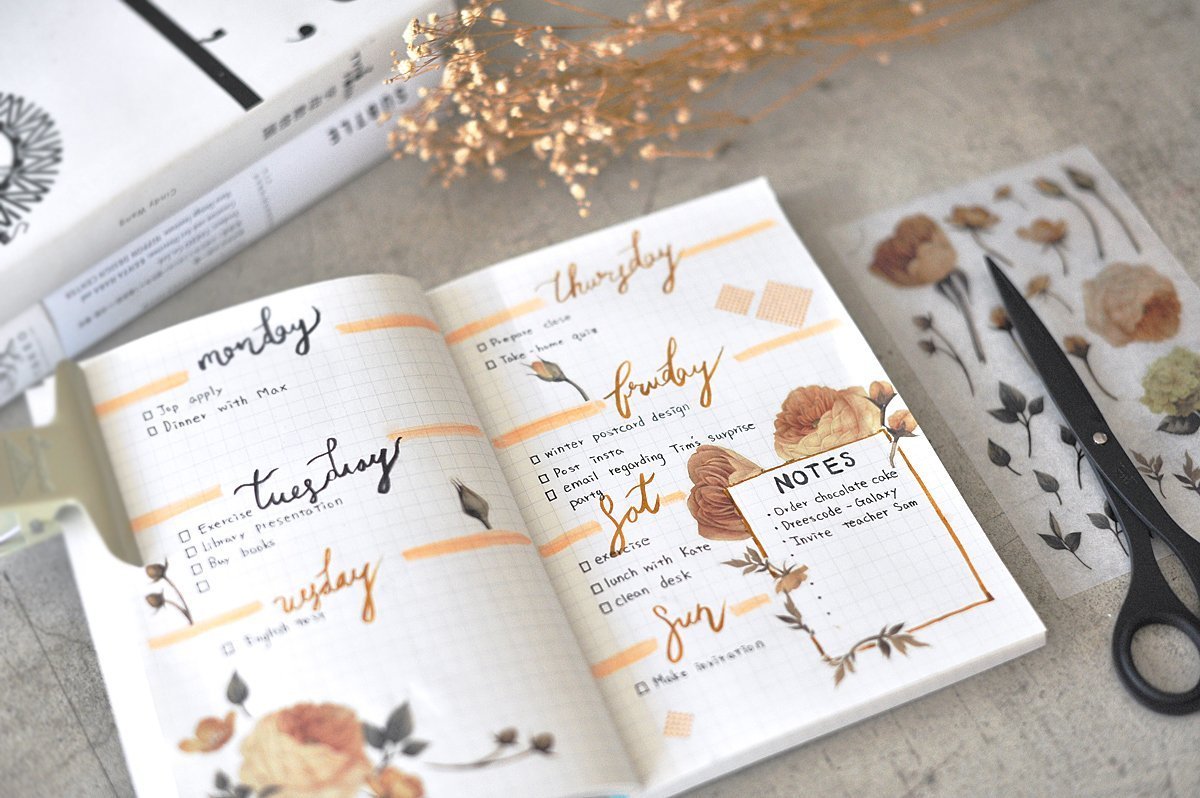 SUBTLE
Cindy Wang
monday
Jop apply
Dinner with Max
tuesday
Exercise
Library presentation
Buy books
wesday
English test
thursday
Prepare close
Take-home quiz
friday
winter postcard design
Post insta
email regarding Tim's surprise
party
Sat
exercise
lunch with Kate
clean desk
Sun
Make invitation
NOTES
• Order chocolate cake
• Dreescode - Galaxy
• Invite teacher Sam